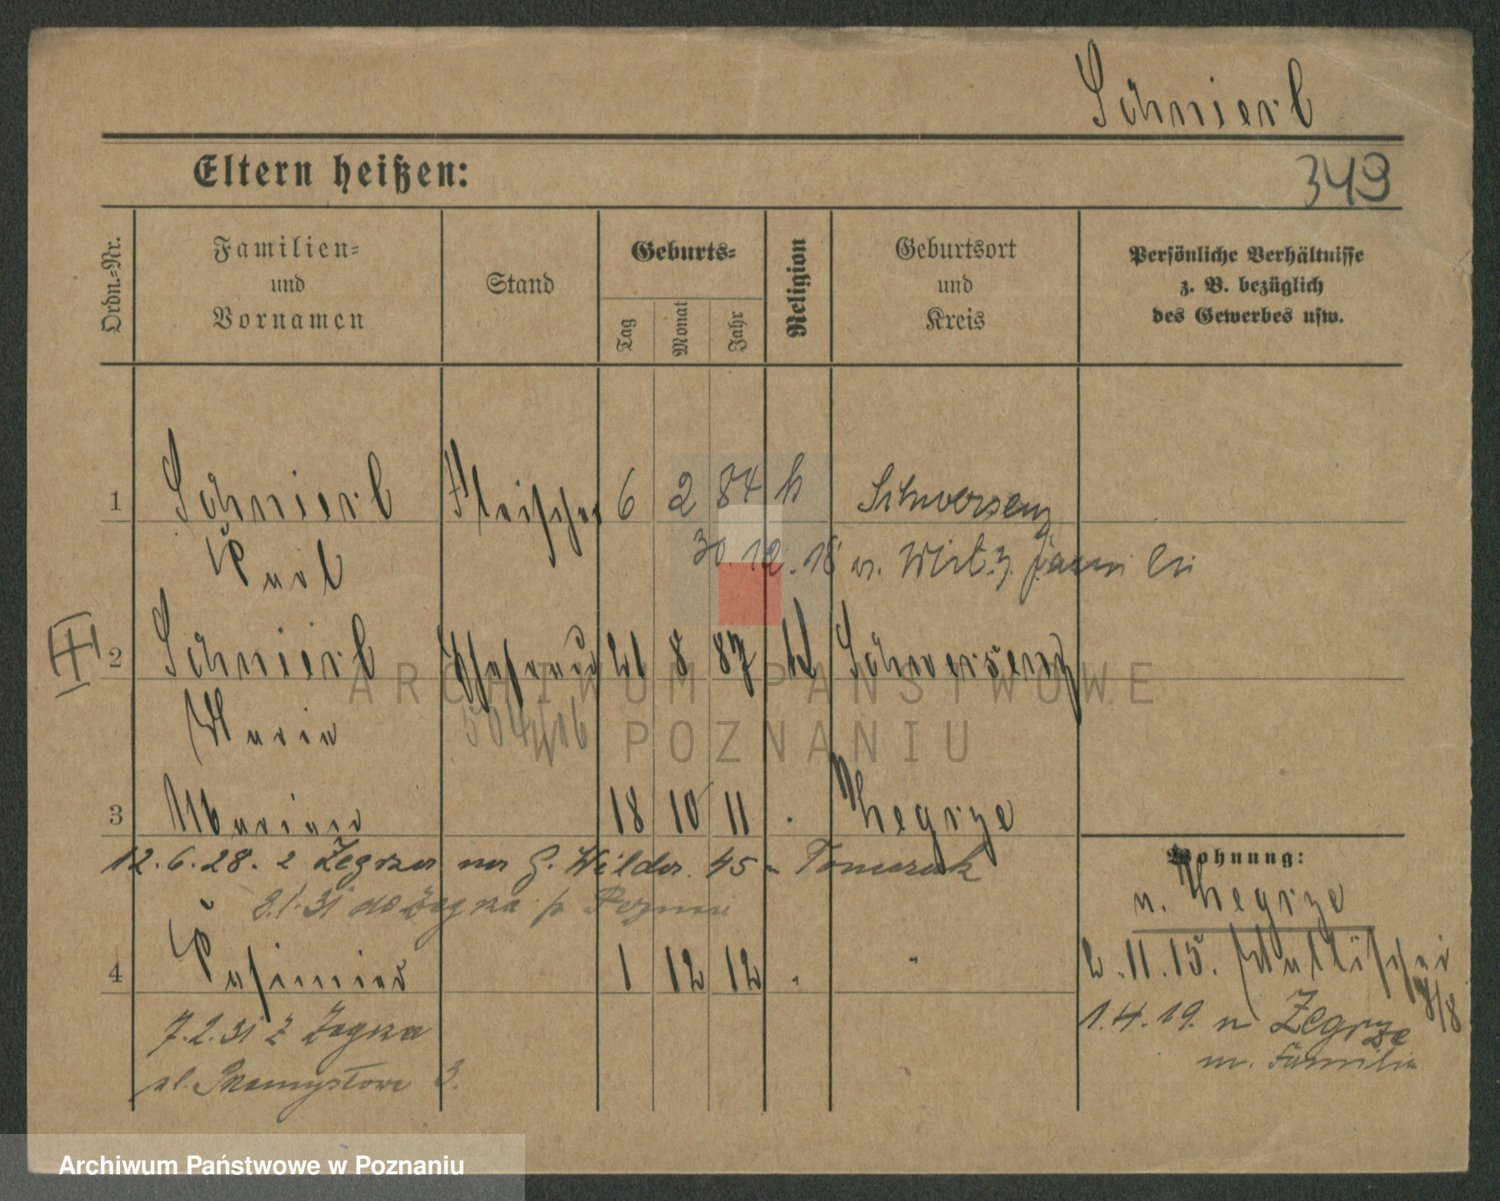 Schnierl
Eltern heißen:
349
Ordn.-Nr.
Familien-
und
Vornamen
Stand
Geburts-
Tag
Monat
Jahr
Religion
Geburtsort
und
Kreis
Persönliche Verhältnisse
z. B. bezüglich
des Gewerbes usw.
1 Schnierl Fleischer 6 2 84 k Schwersenz
Karl
30.12.15
2 Schnierl 21 8 87 k Schwersenz
Maria
3 Marian 18 10 11 Zegrze
12.6.28. z Zegrza na G. Wilda. 45 - Tomczak
8.1.31 do Żegrza p Poznań
4 Kasimir 1 12 12 "
7.2.31 z Żegrza
ul. Przemysłowa 3.
Wohnung:
n. Zegrze
2.11.15.
1.4.19. n Zegrze
m. Familie
ARCHIWUM PAŃSTWOWE
W POZNANIU
Archiwum Państwowe w Poznaniu